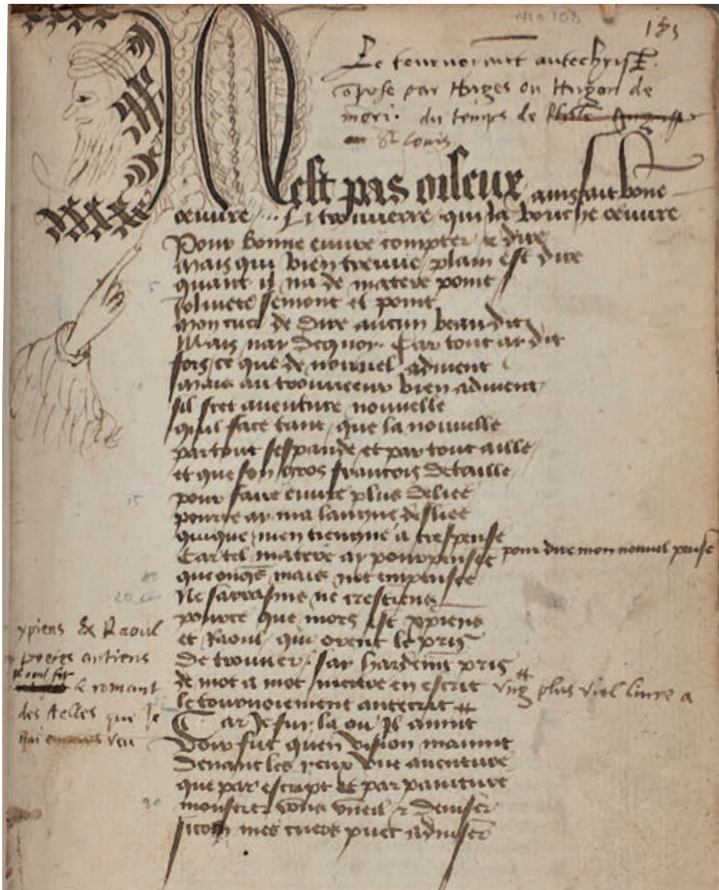 183
Le tournoiement antechrist
compose par Huges ou Hugon de
meri. du temps de
St Louis
N'est pas oiseux ains fait bone
oeuvre Li trouverre qui sa bouche oeuvre
Pour bonne euvre compter & dire
Mais qui bien treuve plain est dire
quant il na de matere point
Joliveté semont et point
mon cuer de dire aucun beau dit
Mais nay dequoy Car tout ay dit
fors ce que de nouvel advient
Mais au trouveeur bien advient
sil scet aventure nouvelle
quil face tant que la nouvelle
partout sespande et par tout aille
et que son gros francois detaille
pour faire euvre plus deliee
pource ay ma langue desliee
quique men tiengne a
Car tel matere ay pourpensee pour dire mon nouvel pensé
que onques mais not empensee
Ne sarrasins ne crestiens
pource que mors est xpiens
et Raoul qui orent le pris
De trouver
de mot a mot mettre en escrit
ung plus viel livre a
le tournoiement antecrit
Car Je fui la ou Il
devant les yeux une aventure
que par escript et par painture
monstrer vous vueil & deviser
sicom mes cuers puet adviser
xpiens & Raoul
poetes antiens
Raoul fit
le romant
des Aelles que Je
nai encores veu